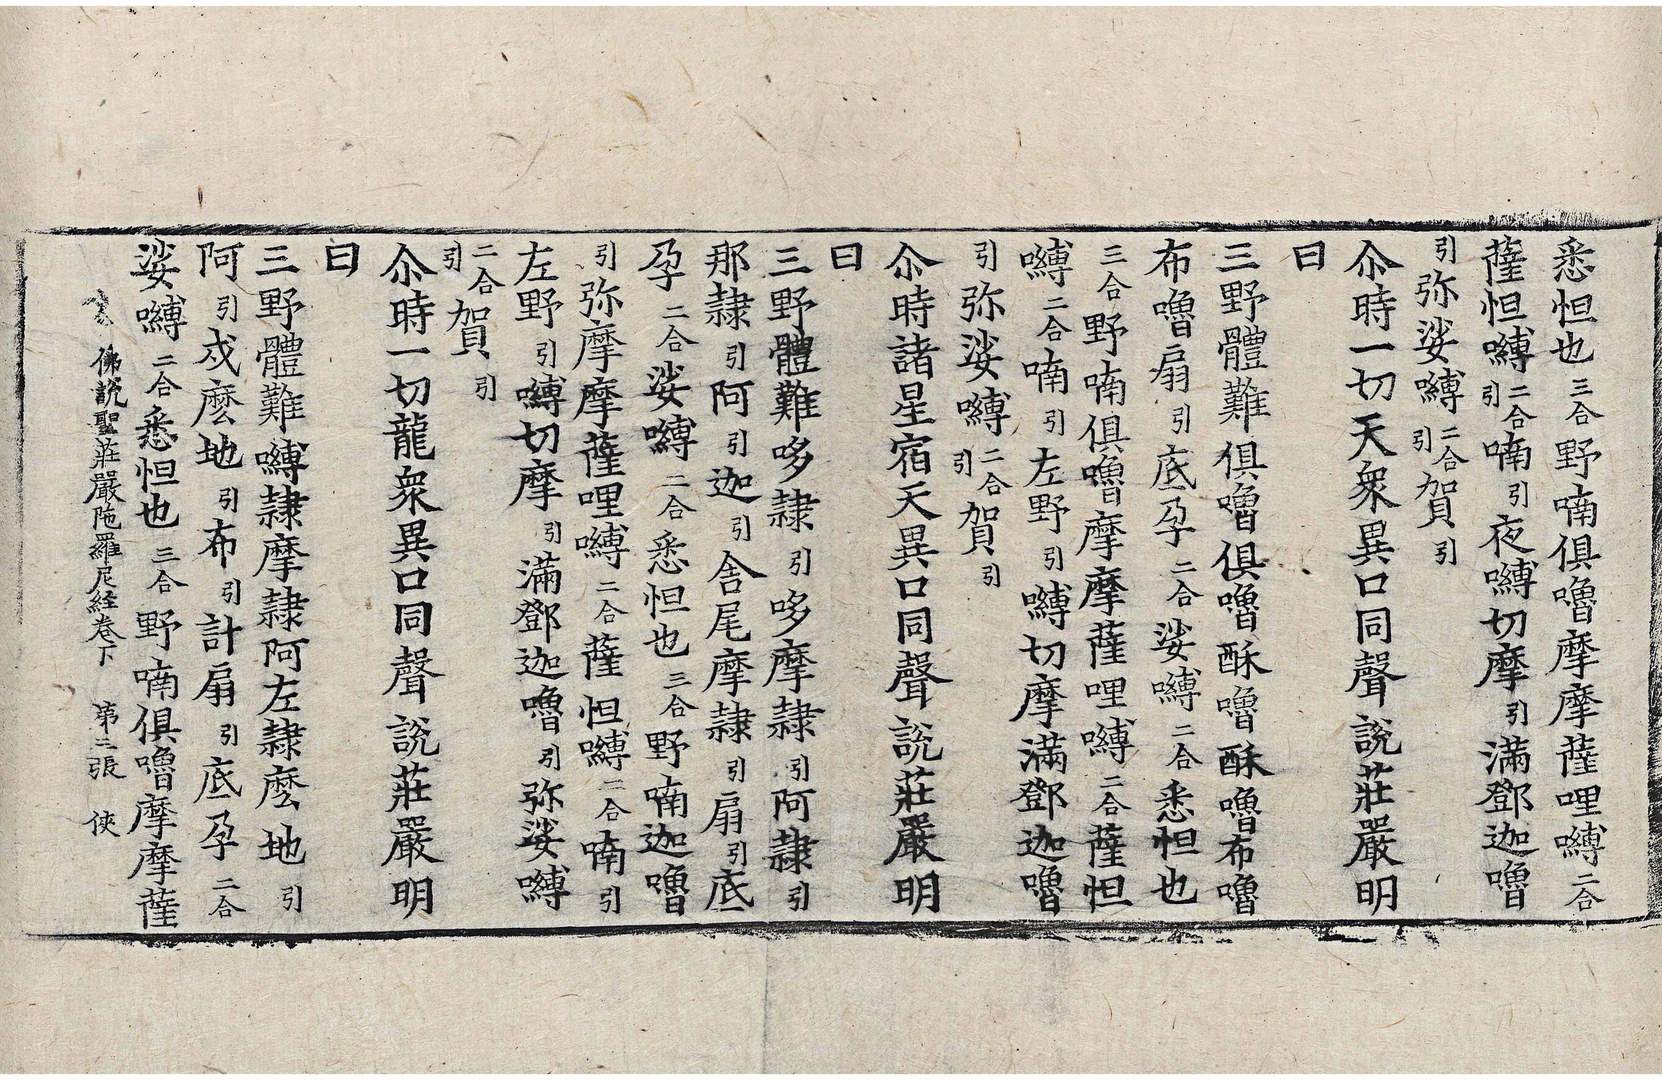 悉怛也三合野喃俱嚕摩摩薩哩嚩二合
薩怛嚩二合引喃引夜嚩切摩引滿鄧迦嚕
引弥娑嚩二合引賀引
尒時一切天衆異口同聲說莊嚴明
曰
三野體難俱嚕俱嚕酥嚕酥嚕布嚕
布嚕扇引底孕二合娑嚩二合悉怛也
三合野喃俱嚕摩摩薩哩嚩二合薩怛
嚩二合喃引左野引嚩切摩滿鄧迦嚕
引弥娑嚩二合引賀引
尒時諸星宿天異口同聲說莊嚴明
曰
三野體難哆隷引哆摩隷引阿隷引
那隷引阿引迦引舍尾摩隷引扇引底
孕二合娑嚩二合悉怛也三合野喃迦嚕
引弥摩摩薩哩嚩二合薩怛嚩二合喃引
左野引嚩切摩引滿鄧迦嚕引弥娑嚩
二合引賀引
尒時一切龍衆異口同聲說莊嚴明
曰
三野體難嚩隷摩隷阿左隷麽地引
阿引戍麽地引布引計扇引底孕二合
娑嚩二合悉怛也三合野喃俱嚕摩摩薩
佛說聖莊嚴陁羅尼経卷下 第三張 俠